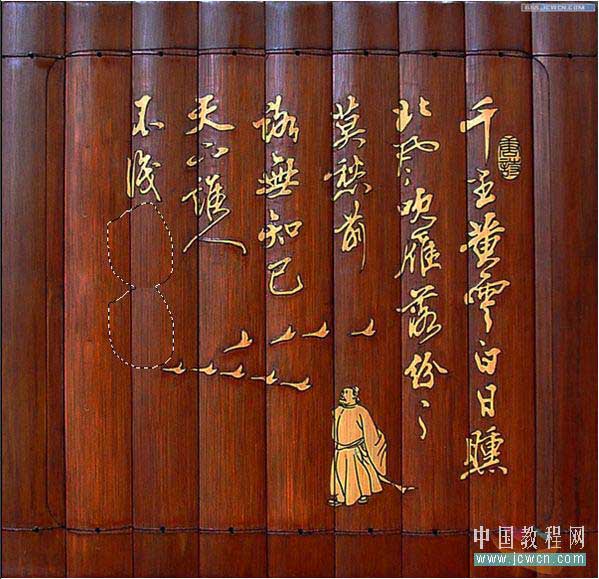 BBS.JCWCN.COM
唐詩
千里黄雲白日曛
北风吹雁落纷〻
莫愁前
路無知己
天下誰人
不識
中国教程网
www.jcwcn.com